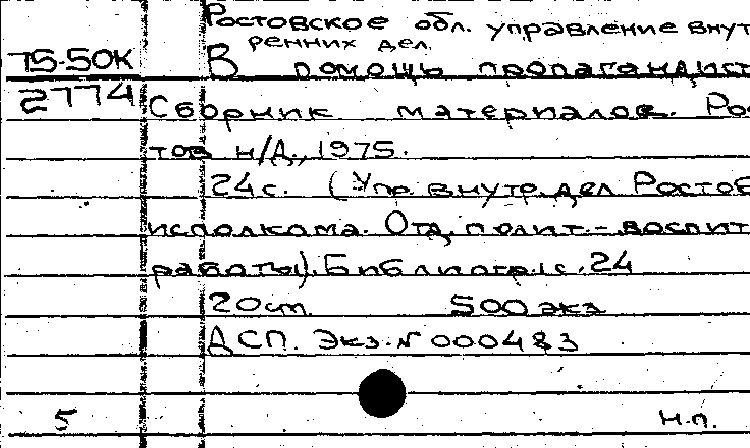 Ростовское обл. управление внут
ренних дел.
75-50К В помощь пропагандист
2774 Сборник материалов. Рос
тов н/Д., 1975.
24 с. (Упр. внутр. дел Ростов
исполкома. Отд. полит.- воспит
работы). Библиогр.: с. 24
20 см. 500 экз
ДСП. Экз. № 000483
5 н.п.